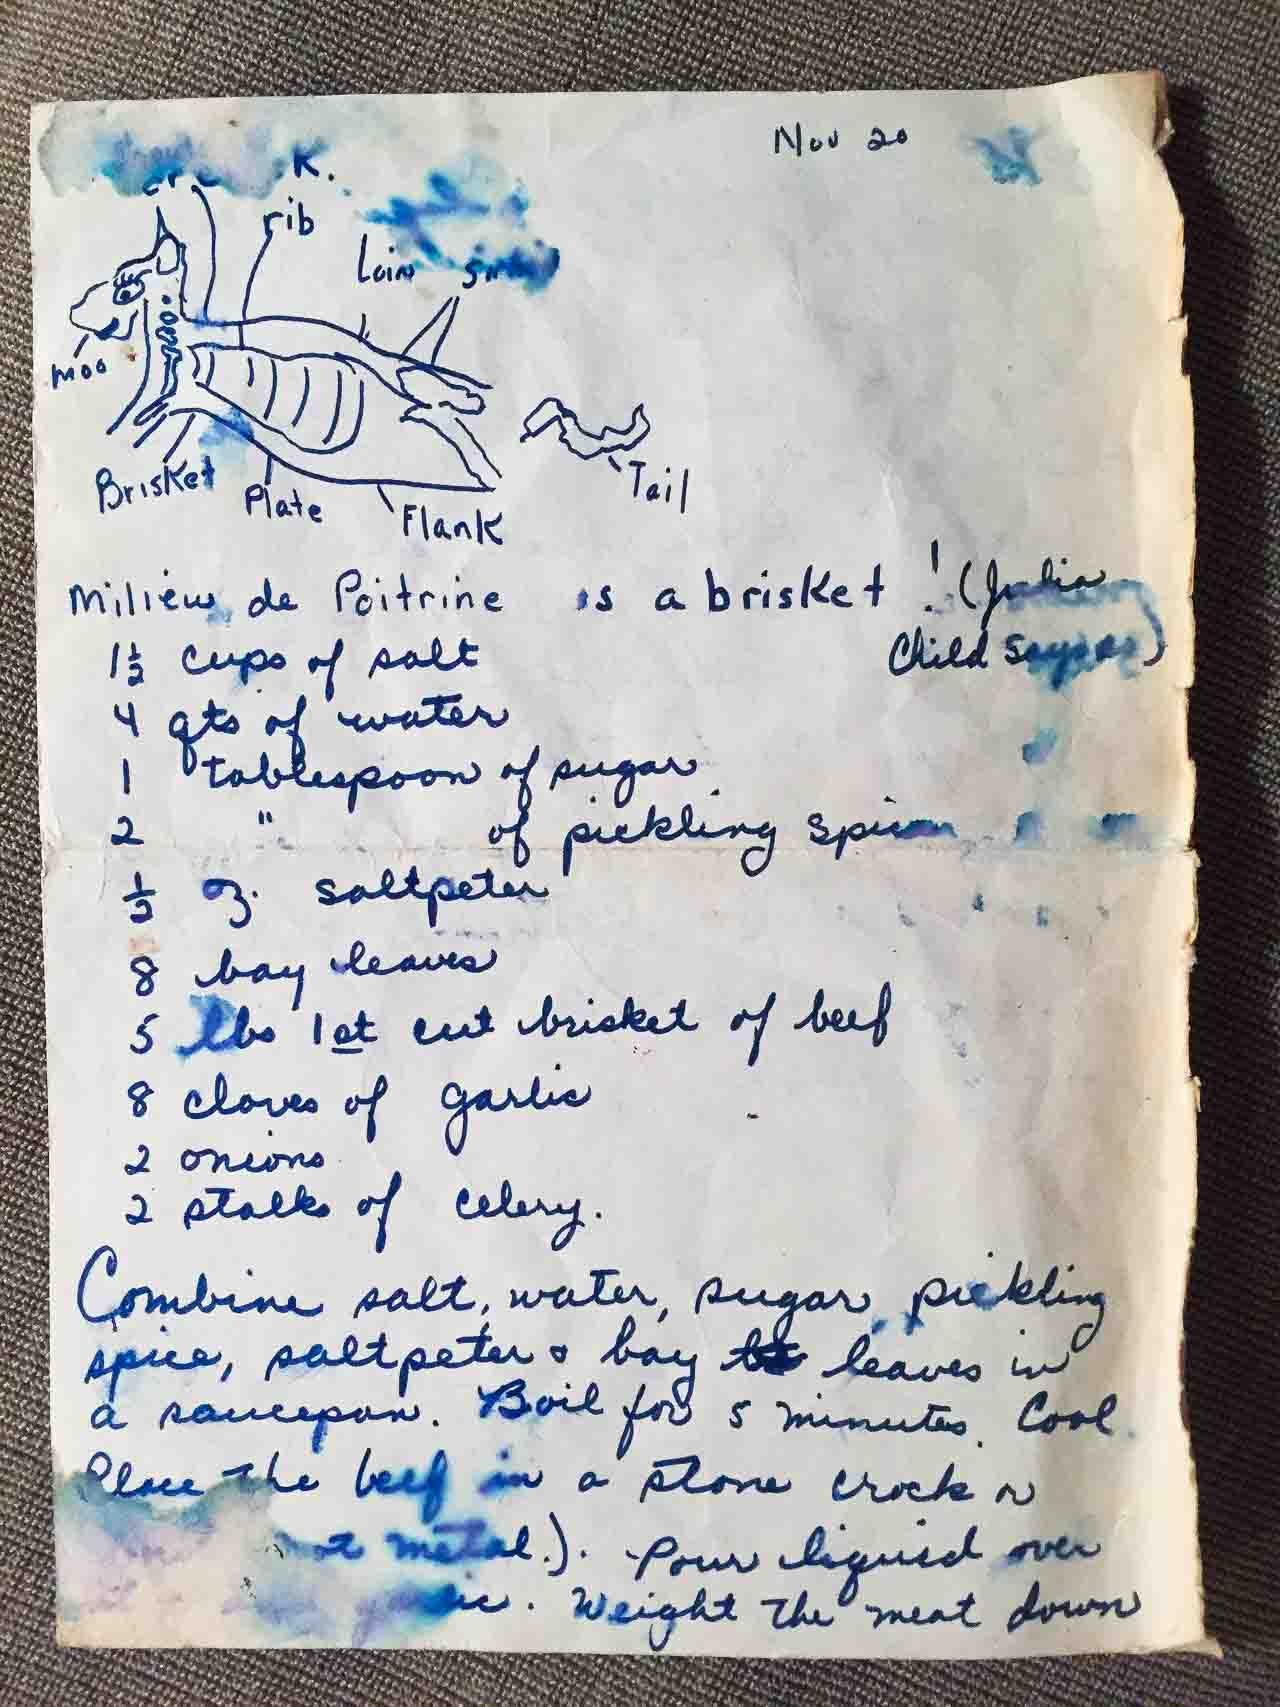 Nov 20
K.
rib
Loin
moo
Brisket
Plate
Flank
Tail
Milieu de Poitrine is a brisket! (Julia
Child says so)
1½ cups of salt
4 qts of water
1 tablespoon of sugar
2 " of pickling spices
½ oz. saltpeter
8 bay leaves
5 lbs 1st cut brisket of beef
8 cloves of garlic
2 onions
2 stalks of celery.
Combine salt, water, sugar, pickling
spice, saltpeter & bay leaves in
a saucepan. Boil for 5 minutes. Cool.
Place the beef in a stone crock or
not metal.). Pour liquid over
garlic. Weight the meat down